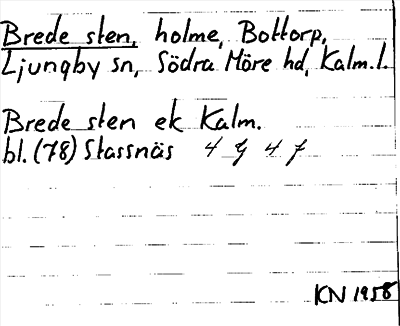 Brede sten, holme, Bottorp,
Ljungby sn, Södra Möre hd, Kalm.l.
Brede sten ek Kalm.
bl. (78) Stassnäs 4 g 4 f
KN 1958